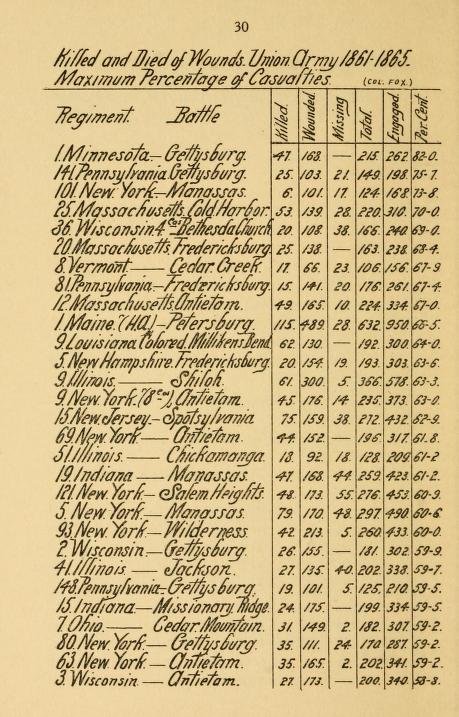 30
Killed and Died of Wounds. Union Army 1861-1865.
Maximum Percentage of Casualties. (COL. FOX.)
Regiment. Battle Killed. Wounded. Missing. Total. Engaged. Per.Cent
1. Minnesota.— Gettysburg. 47. 168. — 215. 262 82-0.
141. Pennsylvania Gettysburg. 25. 103. 21. 149. 198. 75-7.
101. New. York.— Manassas. 6. 101. 17. 124. 168. 73-8
25. Massachusetts, Cold Harbor. 53. 139. 28. 220. 310. 70-0
36. Wisconsin 4 Cos Bethesda Church 20. 108. 38. 166. 240. 69-0
20. Massachusetts, Fredericksburg. 25. 138. — 163. 238. 68-4.
8. Vermont.— Cedar Creek. 17. 66. 23. 106. 156. 67-9
81. Pennsylvania.— Fredericksburg. 15. 141. 20 176. 261. 67-4
12. Massachusetts, Antietam. 49. 165. 10. 224. 334. 67-0
1. Maine. (H.A.)— Petersburg. 115. 489. 28. 632. 950. 66-5.
9. Louisiana Colored. Millikens Bend. 62 130. — 192. 300. 64-0
5. New Hampshire. Fredericksburg. 20 154. 19. 193. 303. 63-6
9. Illinois.— Shiloh. 61. 300. 5. 366. 578. 63-3.
9. New York. (8 Cos) Antietam. 45 176. 14 235. 373. 63-0.
15. New. Jersey.— Spotsylvania 75. 159. 38. 272. 432 62-9.
69. New York.— Antietam. 44 152. — 196. 317. 61.8.
51. Illinois.— Chickamanga. 18 92. 18 128 209. 61-2
19. Indiana — Manassas. 47. 168. 44 259. 423. 61-2.
121. New York.— Salem Heights. 48. 173. 55. 276. 453. 60-9.
5. New York.— Manassas. 79. 170 48. 297. 490. 60-6.
93. New York.— Wilderness. 42 213. 5. 260. 433. 60-0.
2. Wisconsin.— Gettysburg. 26. 155. — 181. 302. 59-9.
41. Illinois — Jackson. 27. 135. 40. 202. 338. 59-7.
148. Pennsylvania.— Gettysburg. 19. 101. 5. 125. 210. 59-5.
15. Indiana.— Missionary. Ridge. 24. 175. — 199. 334 59-5.
7. Ohio.— Cedar Mountain. 31. 149. 2. 182. 307. 59-2.
80. New York.— Gettysburg. 35. 111. 24 170 287. 59-2.
63. New York.— Antietam. 35. 165. 2. 202. 341. 59-2.
3. Wisconsin — Antietam. 27. 173. — 200. 340. 58-8.